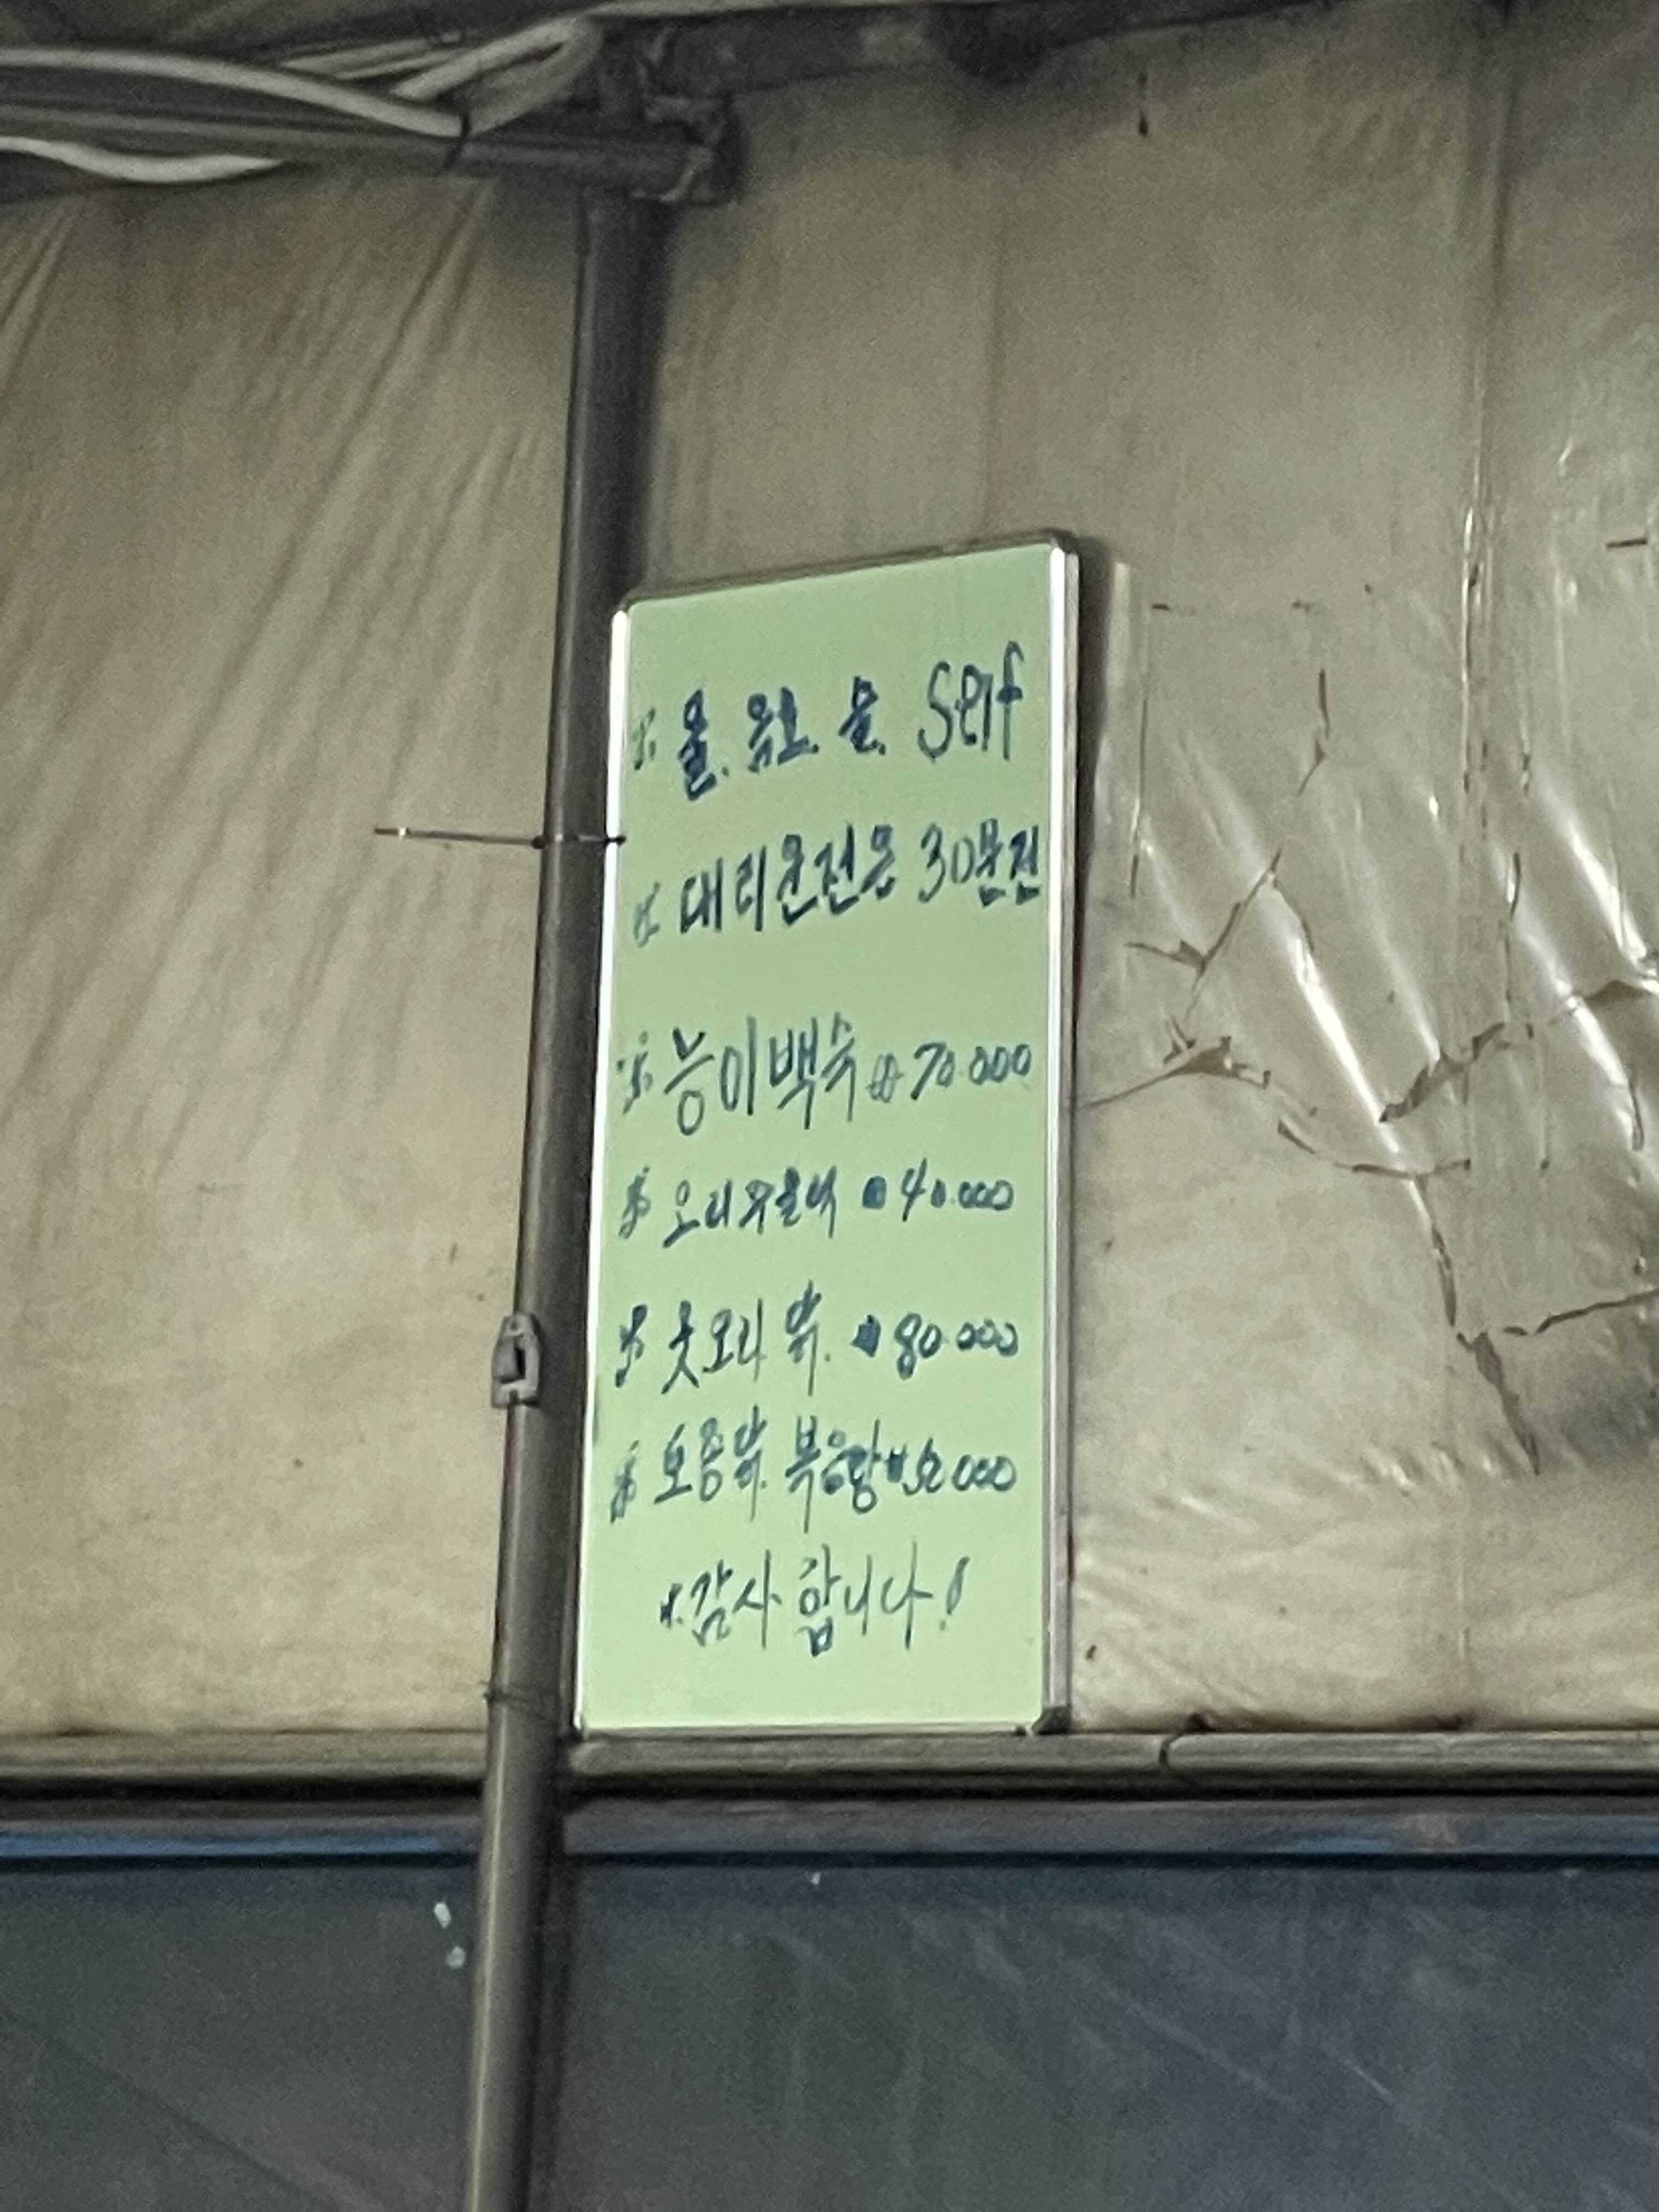 ※ 물. 음료. 물. Self
※ 대리운전은 30분전
※ 능이백숙 70.000
※ 오리 40.000
※ 옻오리 쑥. 80.000
※ 토종쑥. 볶음탕 000
※ 감사 합니다!